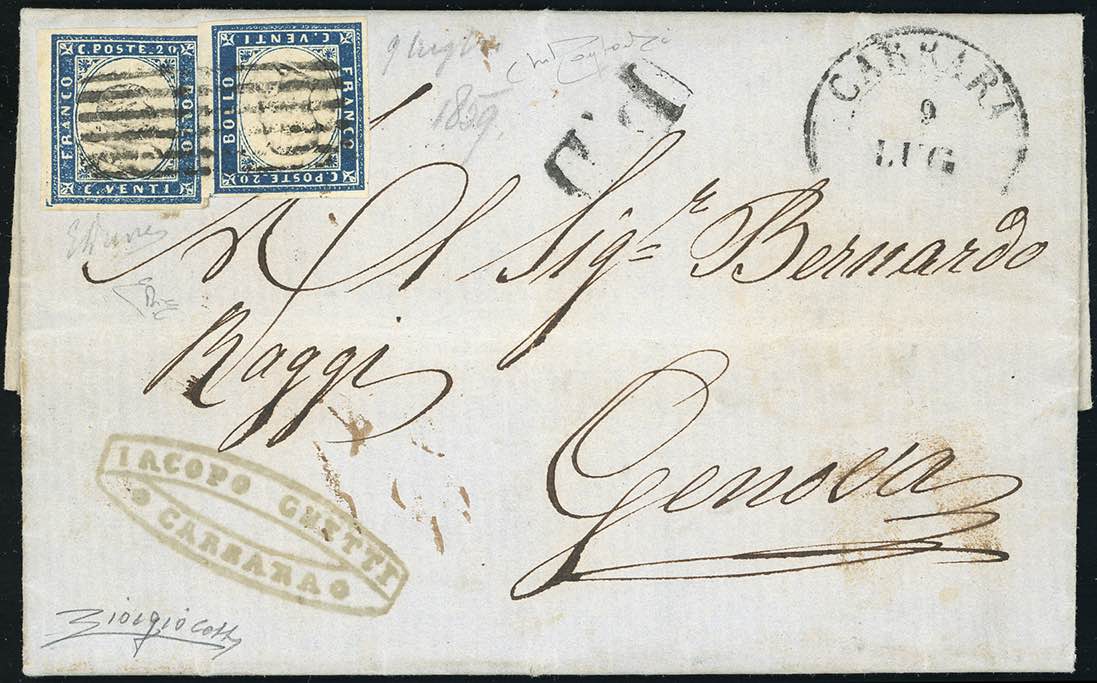 C. POSTE. 20
FRANCO
BOLLO
C. VENTI
C. VENTI
BOLLO
FRANCO
C. POSTE. 20
9 luglio
1859.
P.D.
CARRARA
9
LUG
Al Sig.r Bernardo
Raggi
Genova
IACOPO GHETTI
CARRARA